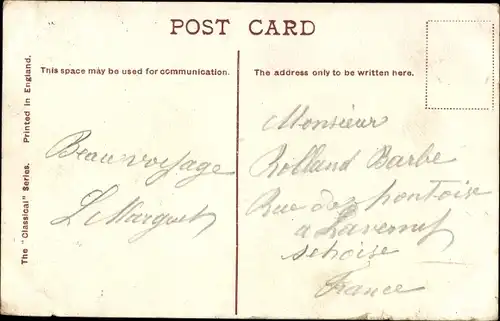 POST CARD
This space may be used for communication.
The address only to be written here.
The "Classical" Series. Printed in England.
Beau voyage
L Marguet
Monsieur
Rolland Barbe
Rue de pontoise
a
France